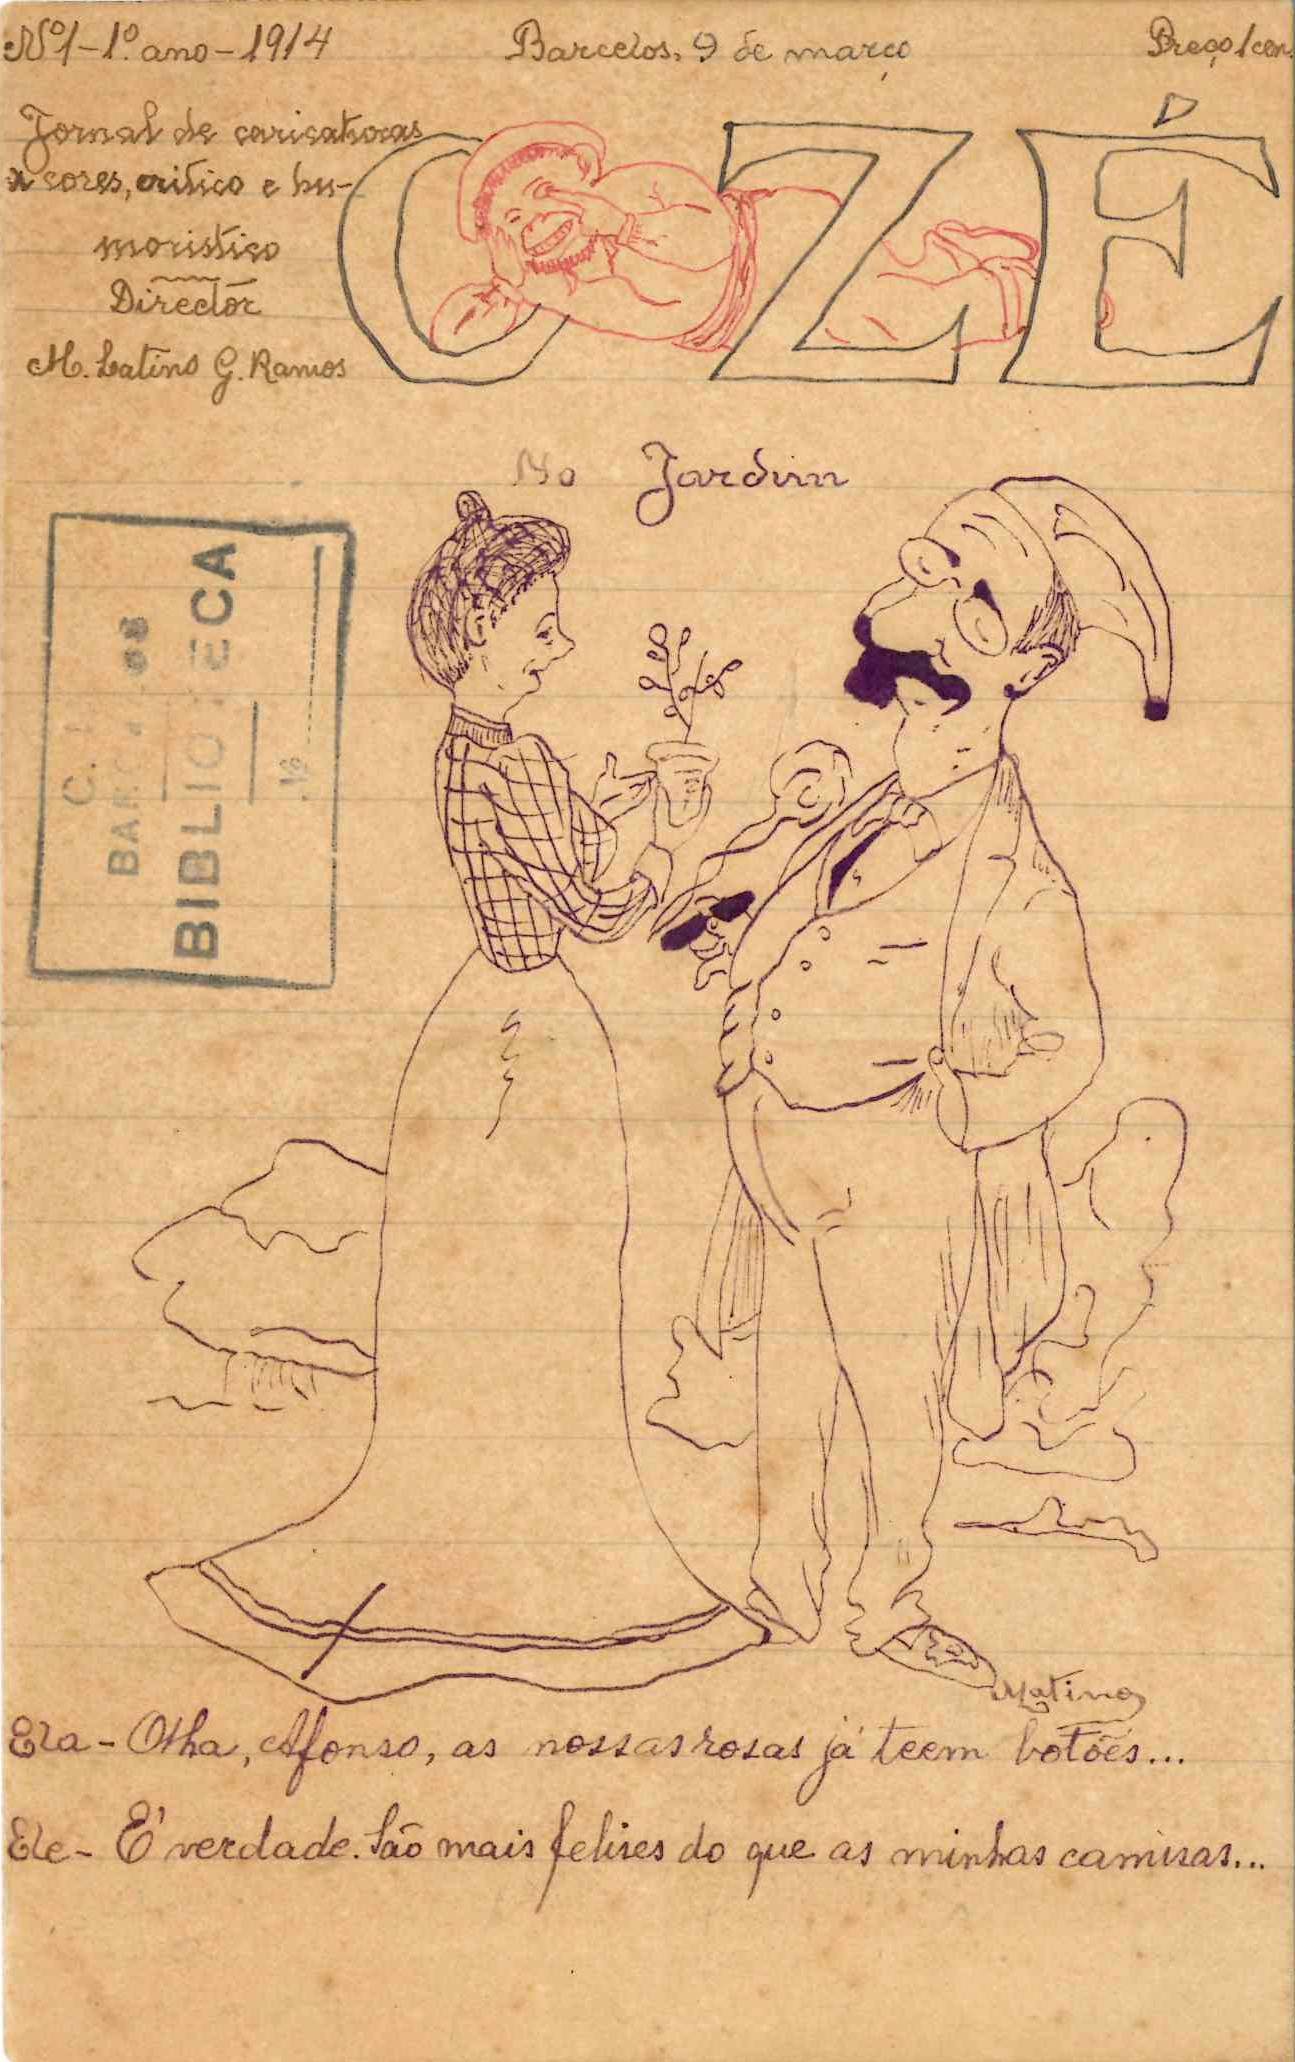 Nº1-1º. ano-1914
Barcelos, 9 de março
Preço 1 cen.
Jornal de caricaturas
a cores, critico e hu-
moristico
Director
M. Latino G. Ramos
O ZÉ
No Jardim
BIBLIO ECA
Ela - Olha, Afonso, as nossas rosas já teem botões...
Ele - É verdade. São mais felises do que as minhas camisas...